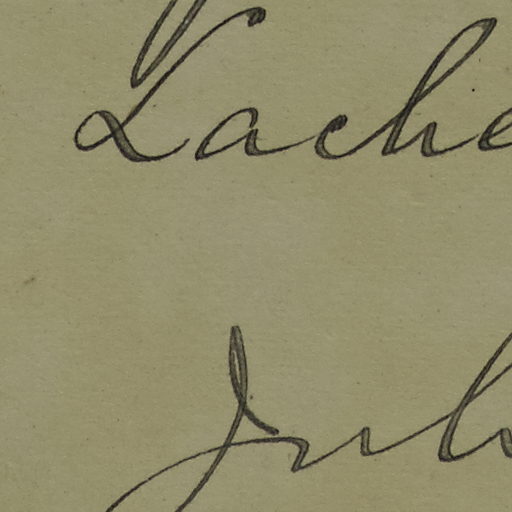 Lache
Jul